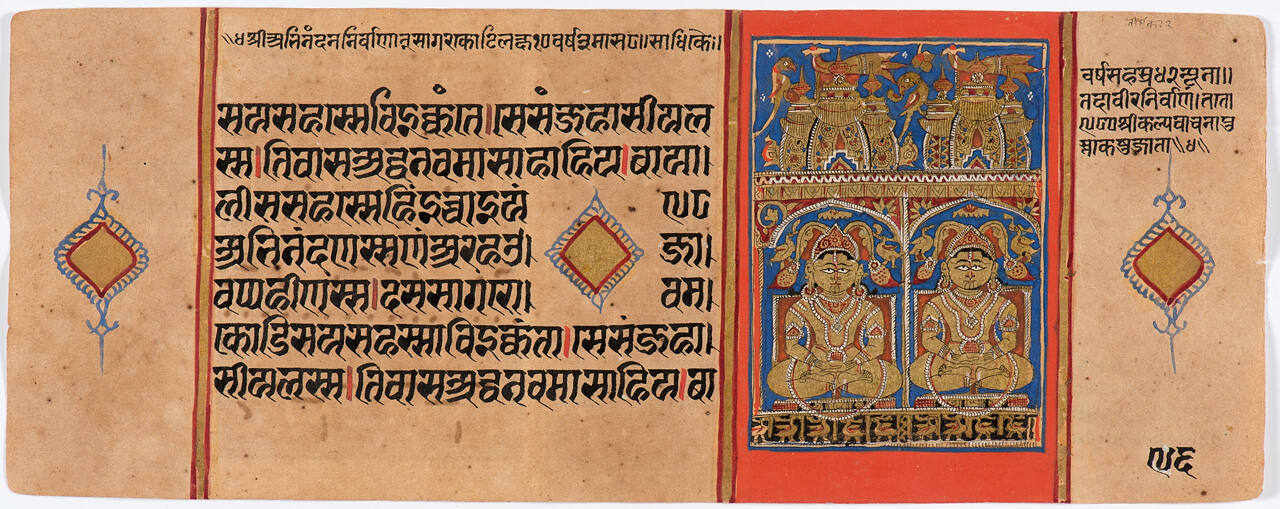 श्रीअभिनंदननिर्वाणात्सागराकोटिलक्ष१०वर्ष३मास८॥साधिके।।
सयसहस्सविइक्कंता।सेसंजहासीयल
स्स।तिवासअद्धनवमासाहाहिय।बाया।
लीससहस्सेहिंइच्चाइयं
अभिनंदणस्सणंअरहओ जा।
वप्पहीणस्स।दससागरो। वम।
कोडिसयसहस्साविइक्कंता।सेसंजहा।
सीयलस्स।तिवासअद्धनवमासाहिय।बा
वर्षसहस्र४२न्यूना॥
तदावीरनिर्वाणं।ततो
९८०श्रीकल्पवाचनापु
स्तकेषुजाता॥
९६